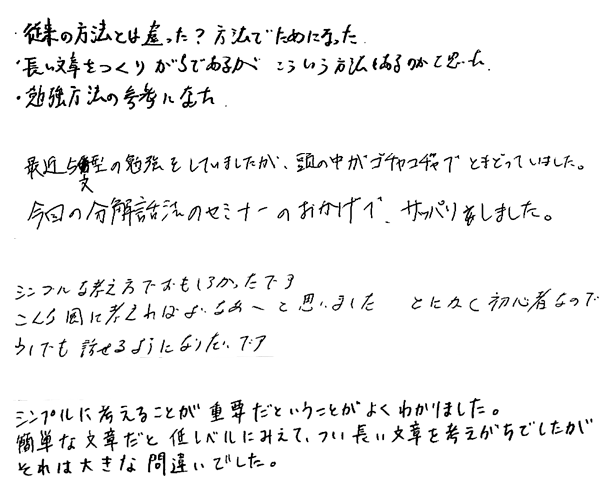 ・従来の方法とは違った？方法でためになった
・長い文章をつくりがちであるが こういう方法もあるのかと思った
・勉強方法の参考になった
最近5文型の勉強をしていましたが、頭の中がゴチャゴチャでとまどっていました。
今回の分解話法のセミナーのおかげで、サッパリをしました。
シンプルな考え方でおもしろかったです
こんな風に考えればよいなあーと思いました とにかく初心者なので
少しでも話せるようになりたいです
シンプルに考えることが重要だということがよくわかりました。
簡単な文章だと低レベルにみえて、つい長い文章を考えがちでしたが
それは大きな間違いでした。